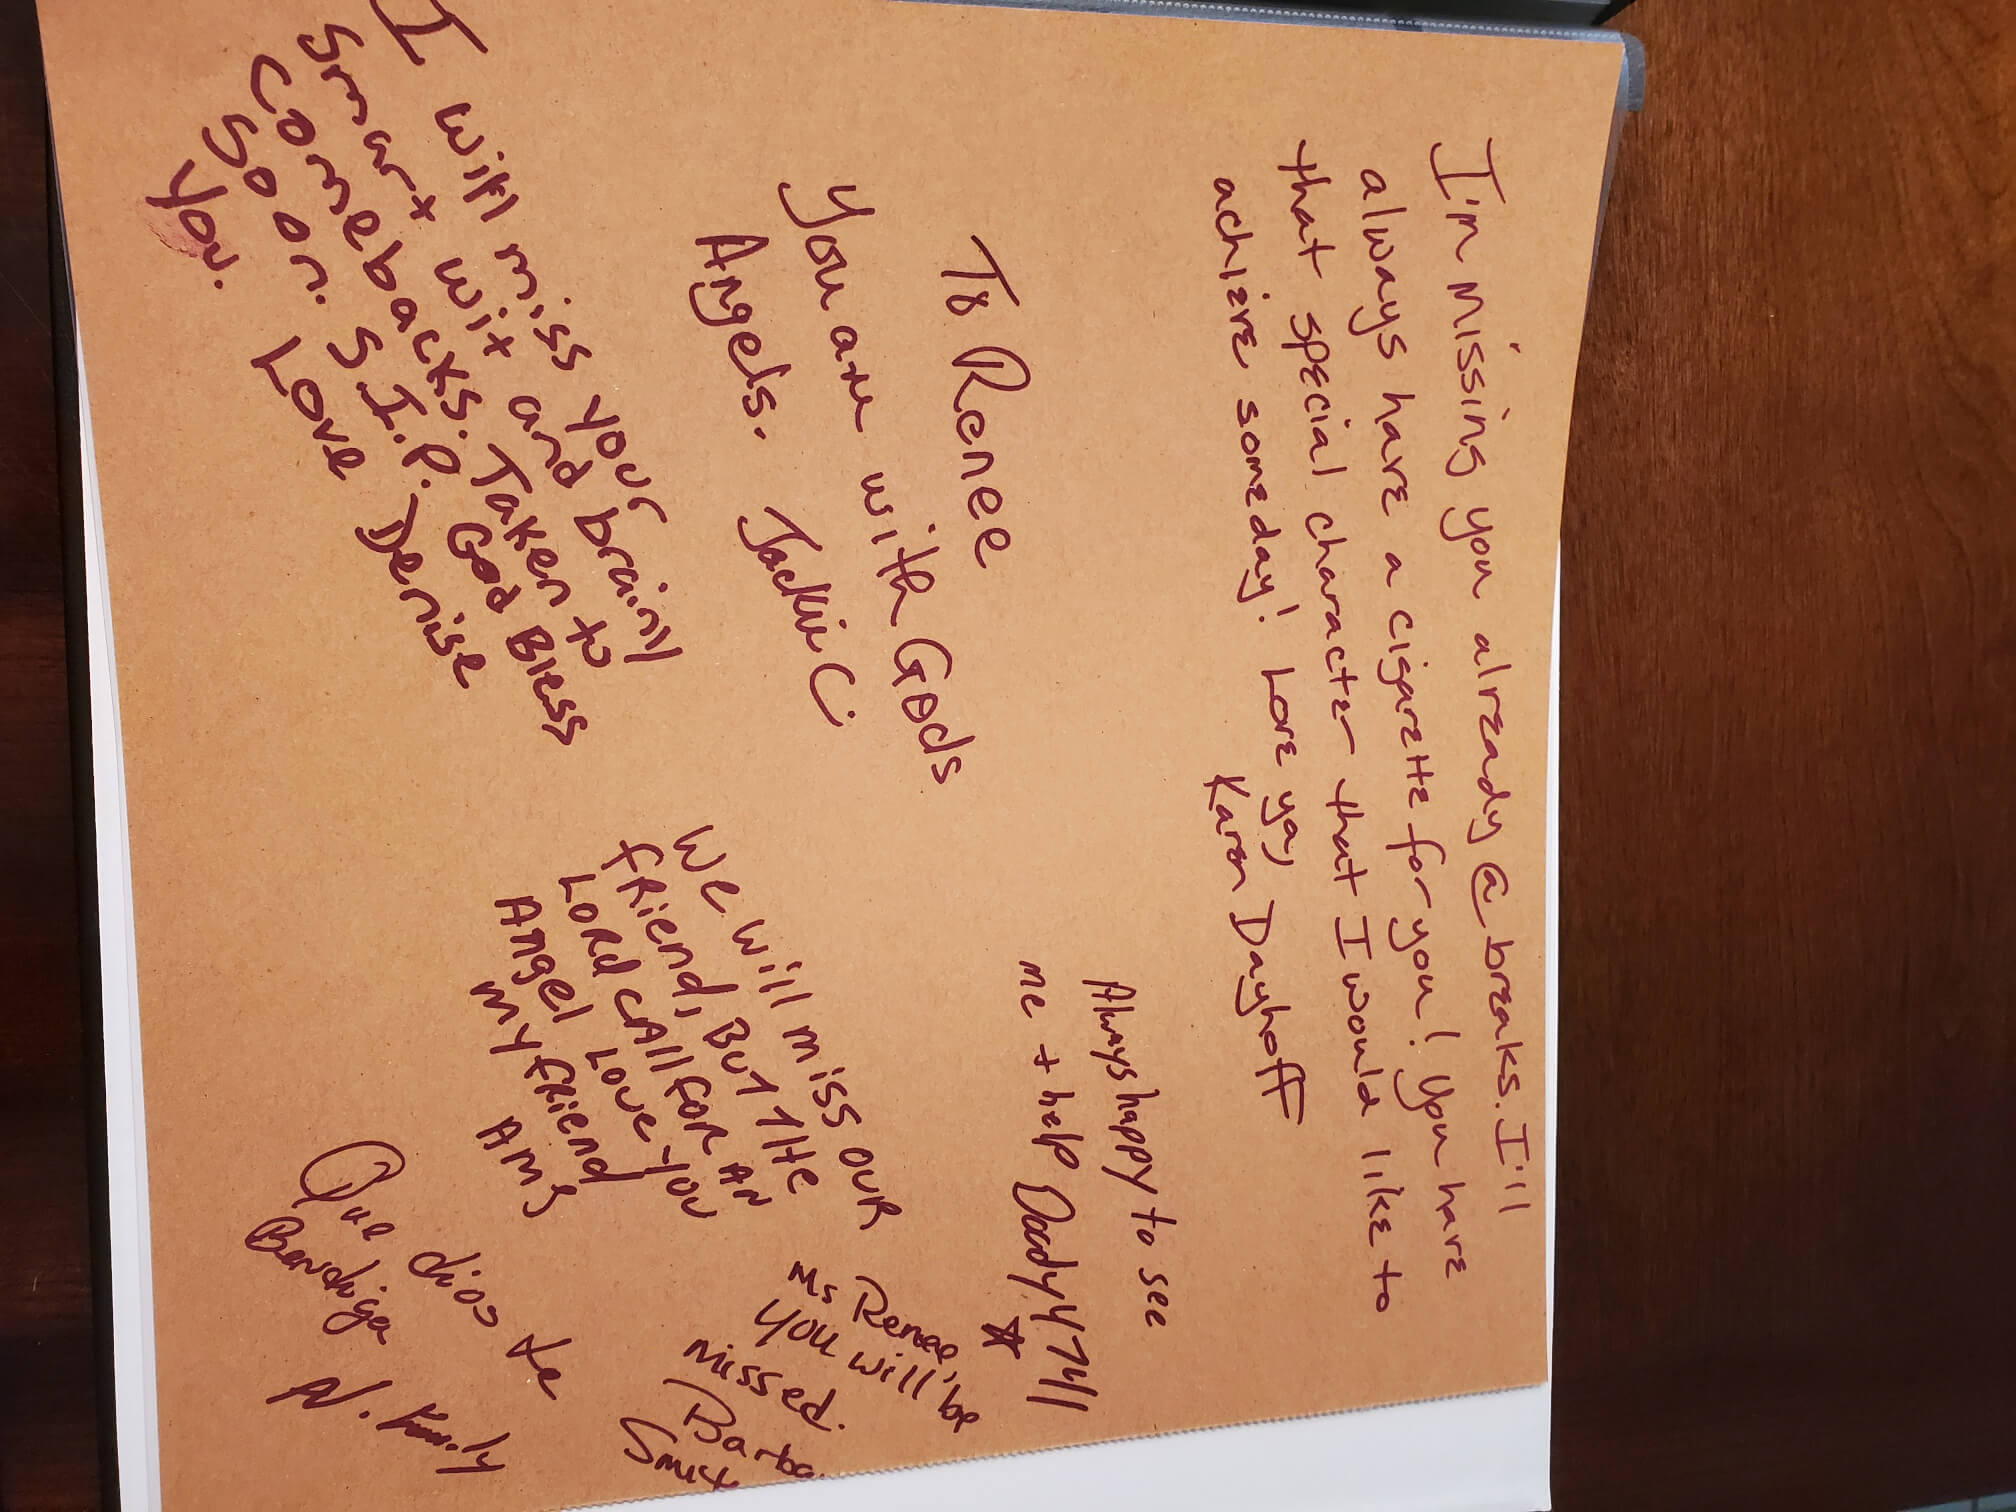 I'm missing you already @ breaks. I'll
always have a cigarette for you! You have
that special character that I would like to
achieve someday! Love ya,
Karen Dayhoff
Always happy to see
me + help
To Renee
You are with Gods
Angels. Jackie C
Ms Renee,
You will be
missed.
We will miss our
friend, But the
Lord call for an
Angel Love you
my friend
AMS
I will miss your
smart wit and brainll
comebacks. Taken to
soon. S.I.P. God Bless
you. Love Denise
Que dios te
Bendiga